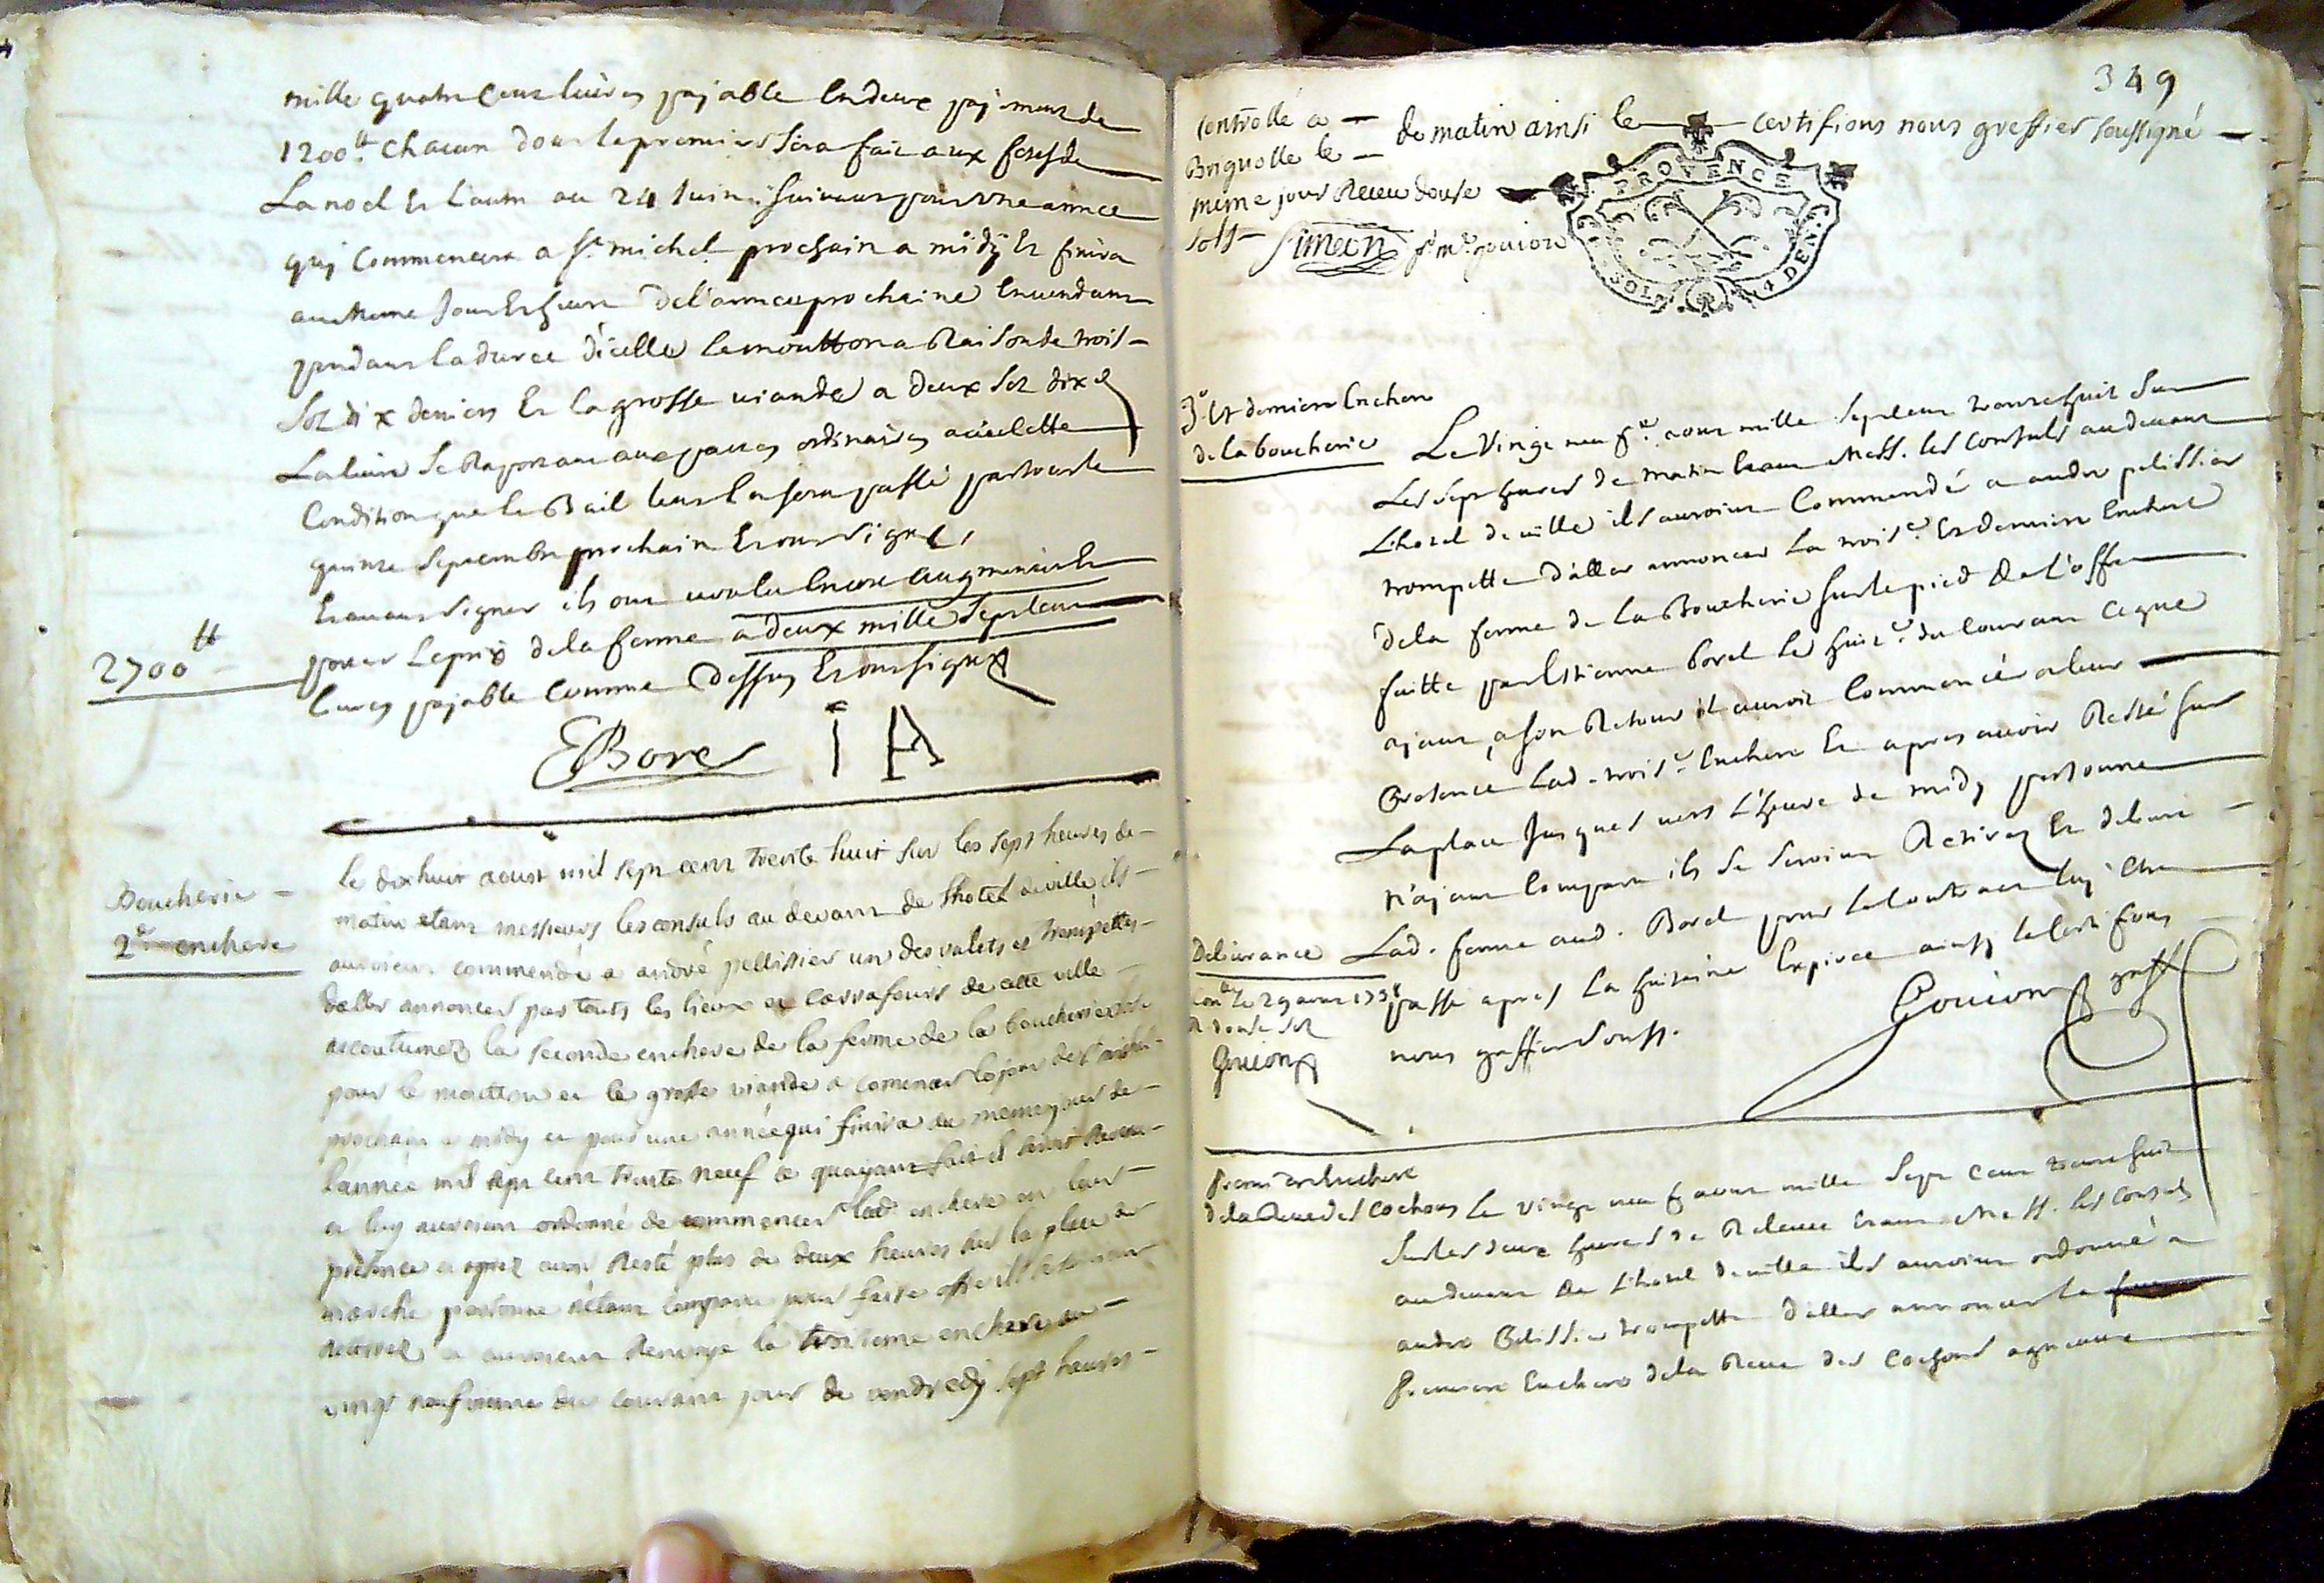 mille quatre cens livres payable en deux payemens de
1200tt. chacun dont le premier sera fait aux festes de
La noel et l'autre au 24 Juin suivant pour une année
quy commencera a St. michel prochain a midÿ et finira
au meme Jour et heure de l'année prochaine en vendant
pendant la durée d'icelle le moutton a Raison de trois
sol dix deniers et la grosse viande a deux sol dix d
La livre se Raportant aux pactes ordinaires a
Condition que le Bail leur en sera passé par tout le
quinse septembre prochain et ont signé,
Et avant signer ils ont voulu encore augmenter et
2700tt
porter le prix de la ferme a deux mille sept cens
livres payable comme dessus et ont signé
EBorel I A
Boucherie
2e enchere
le dix huit aoust mil sept cent trente huit sur les sept heures de
matin etant messieurs les consuls au devant de lhotel de ville ils
auroient commendé a andré pellissier un des valets et trompettes
daller annoncer par touts les lieux et carrafours de cette ville
accoutumez la seconde enchere de la ferme de la boucherie
pour le moutton et le grosse viande a comencer le jour de St michel
prochain a midy et pour une année qui finira au meme jour de
lannée mil sept cent trente neuf ce quayant fait il seroit Revenu
et luy auroient ordonné de commencer lad enchere en leur
présence et aprez avoir Resté plus de deux heures sur la place du
marché personne nétant comparu pour faire offre ils se seroient
Retirez et auroient Renvoyé la troisieme enchere au
vingt neufvieme du courant jour de vendredy sept heures
349
Controllé a
Brignolle le
meme jour Receu douse
sols
Simeon pr. mr. gouion
de matin ainsi le certifions nous greffier soussigné
PROVENCE
SOLS 4 DEN.
3e et derniere Enchere
de la boucherie
Le Vingt neufe aout mille sept cens trente huit sur
Les sept heures de matin Etant Mess. les Consuls au devant
L'hotel de ville ils auroient Commendé a andre pelissier
trompette d'aller annoncer la troise. et derniere Enchere
de la ferme de la Boucherie sur le pied de l'offre
faitte par Estienne borel le huite. du courant ce que
ajant, a son Retour il auroit Commencé a leur
Presence Lad. troise. Enchere Et apres avoir Resté sur
La place jusques vers l'heure de midy personne
n'ajant comparu ils se seroient Retirez Et delivré
Delivrance
Lad. ferme aud. Borel pour le contract luy etre
Conlé le 29 aout 1738
R douse sol
Gouion
passé apres la huitaine Expiree ainsy le certifions
nous greffier souss.
Gouion greff
Premiere Enchere
de la Reve des Cochons
Le vingt neuf aout mille sept cens trente huit
sur les deux heures de Relevee Etant Mess. les Consuls
au devant de L'hotel de ville ils auroient ordonné a
andre Pelissier trompette d'aller annoncer la
Premiere Enchere de la Reve des Cochons agneaux